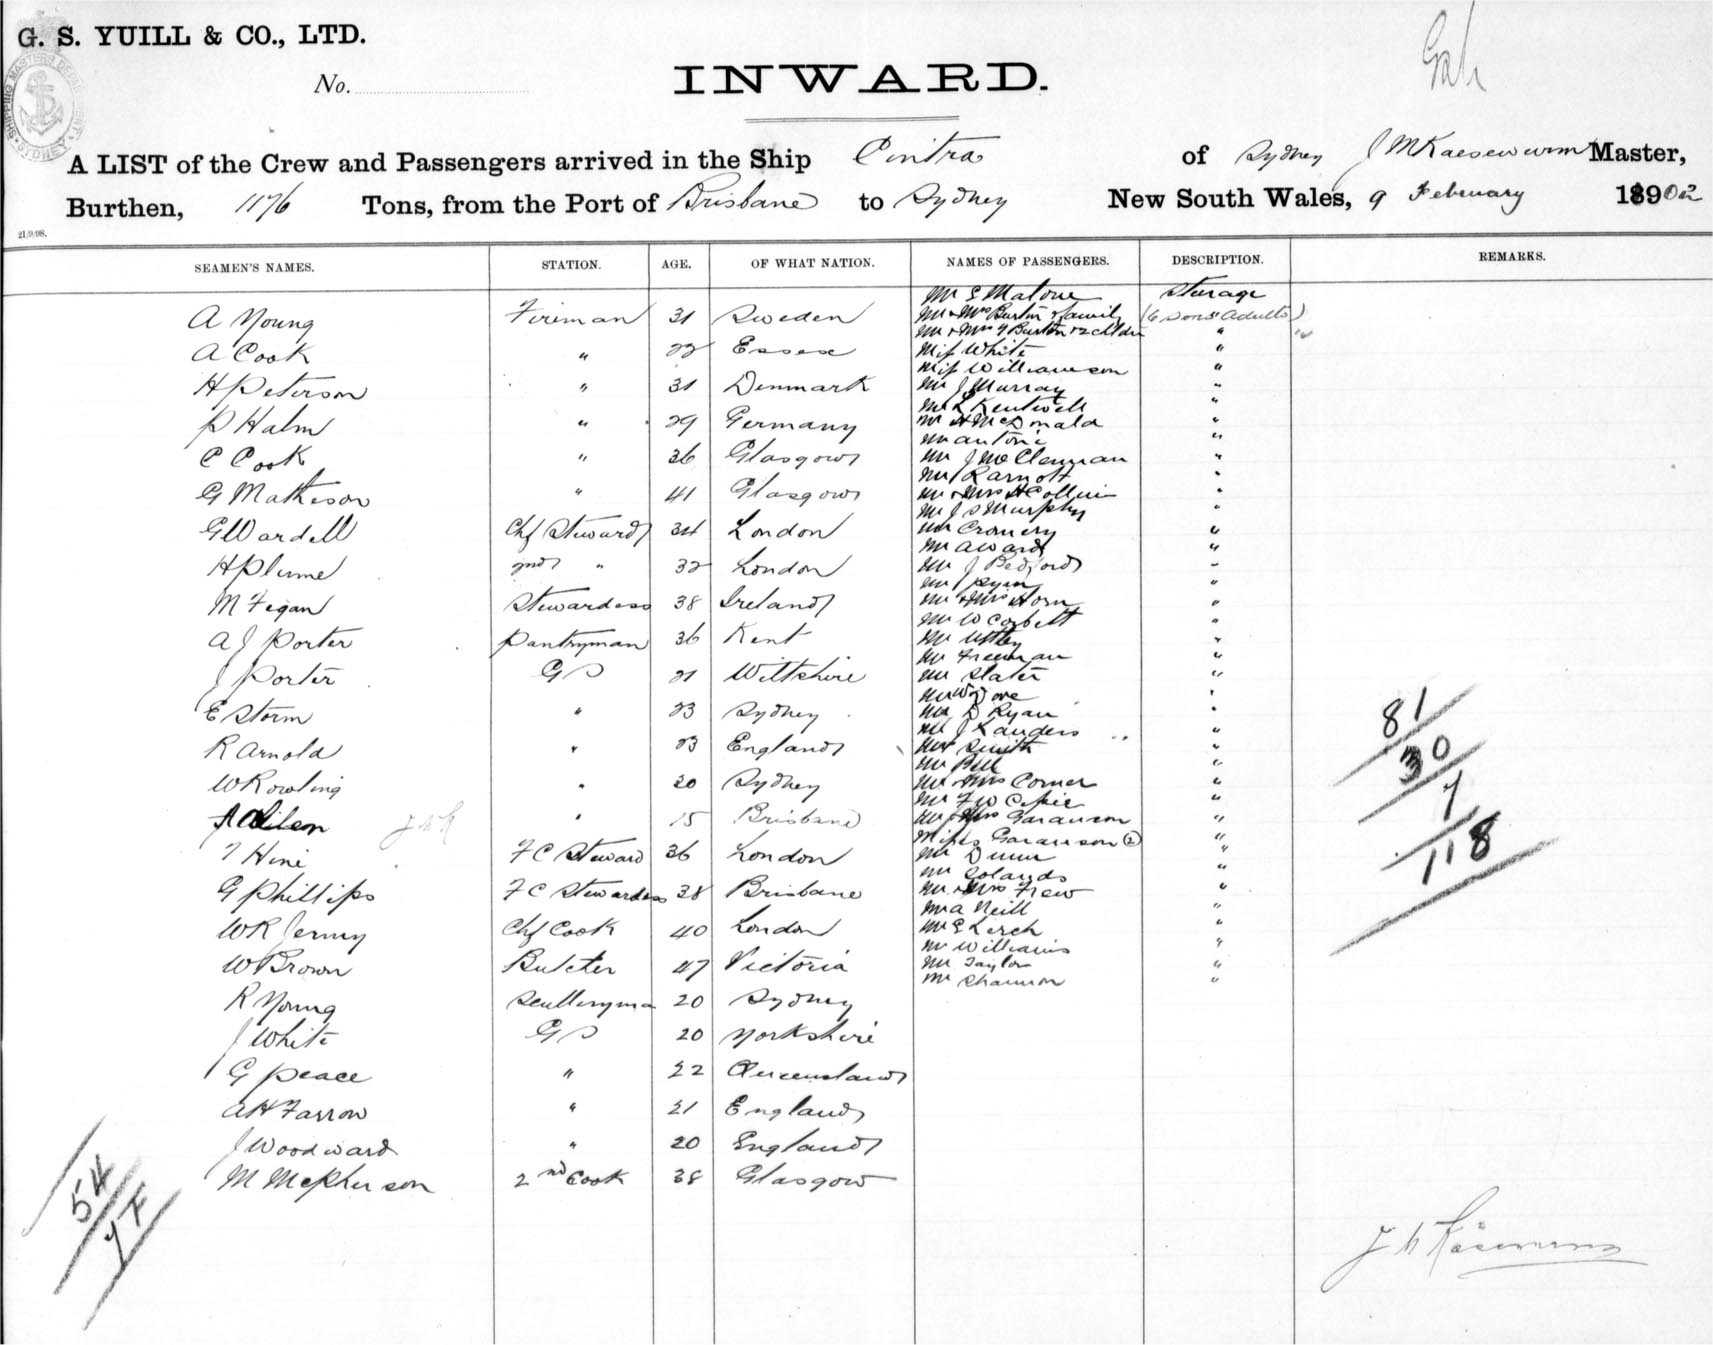 G. S. YUILL & CO., LTD.
No.
INWARD.
A LIST of the Crew and Passengers arrived in the Ship Cintra of Sydney J M Kaesewurm Master,
Burthen, 1176 Tons, from the Port of Brisbane to Sydney New South Wales, 9 February 1902
21/9/98.
SEAMEN'S NAMES. STATION. AGE. OF WHAT NATION. NAMES OF PASSENGERS. DESCRIPTION. REMARKS.
Mr E Malone Sturage
A Young Fireman 31 Sweden Mr & Mrs Burton & family (6 sons Adults)
Mr & Mrs Y Burton & 2 chldn "
A Cook " 22 Essex Miss White "
Miss Williamson "
H Peterson " 31 Denmark Mr J Murray "
Mr L Kentwell "
P Halm " 29 Germany Mr A McDonald "
Mr Antoni "
C Cook " 36 Glasgow Mr J McClennan "
Mr R Arnott "
G Matheson " 41 Glasgow Mr & Mrs H Collins "
Mr J S Murphy "
G Wardell Chf Steward 34 London Mr Cromery "
Mr A Ward "
H Plume 2nd " 32 London Mr J Bedford "
Mr Ryan "
M Fegan Stewardess 38 Ireland Mr & Mrs Horn "
Mr W Corbett "
A J Porter Pantryman 36 Kent Mr Uttley "
Mr Freeman "
J Porter G S 21 Wiltshire Mr Slater "
Mr W Dove "
E Storm " 23 Sydney Mr D Ryan "
Mr J Landers "
R Arnold " 23 England Mr Smith "
Mr Bell "
W Rowling " 20 Sydney Mr & Mrs Corner "
Mr F W "
" 15 Brisbane Mr & Mrs Garauson "
Misses Garauson (2) "
T Hine F C Steward 36 London Mr Dunn "
Mr Solands "
G Phillips F C Stewardess 38 Brisbane Mr & Mrs Frew "
Mr A Neill "
W R Jenny Chf Cook 40 London Mr E Lerch "
Mr Williams "
W Brown Butcher 47 Victoria Mr Taylor "
Mr Shannon "
R Young Sculleryman 20 Sydney
J White G S 20 Yorkshire
G Peace " 22 Queensland
A H Farrow " 21 England
J Woodward " 20 England
M McPherson 2nd Cook 38 Glasgow
81
30
7
118
54
7 F